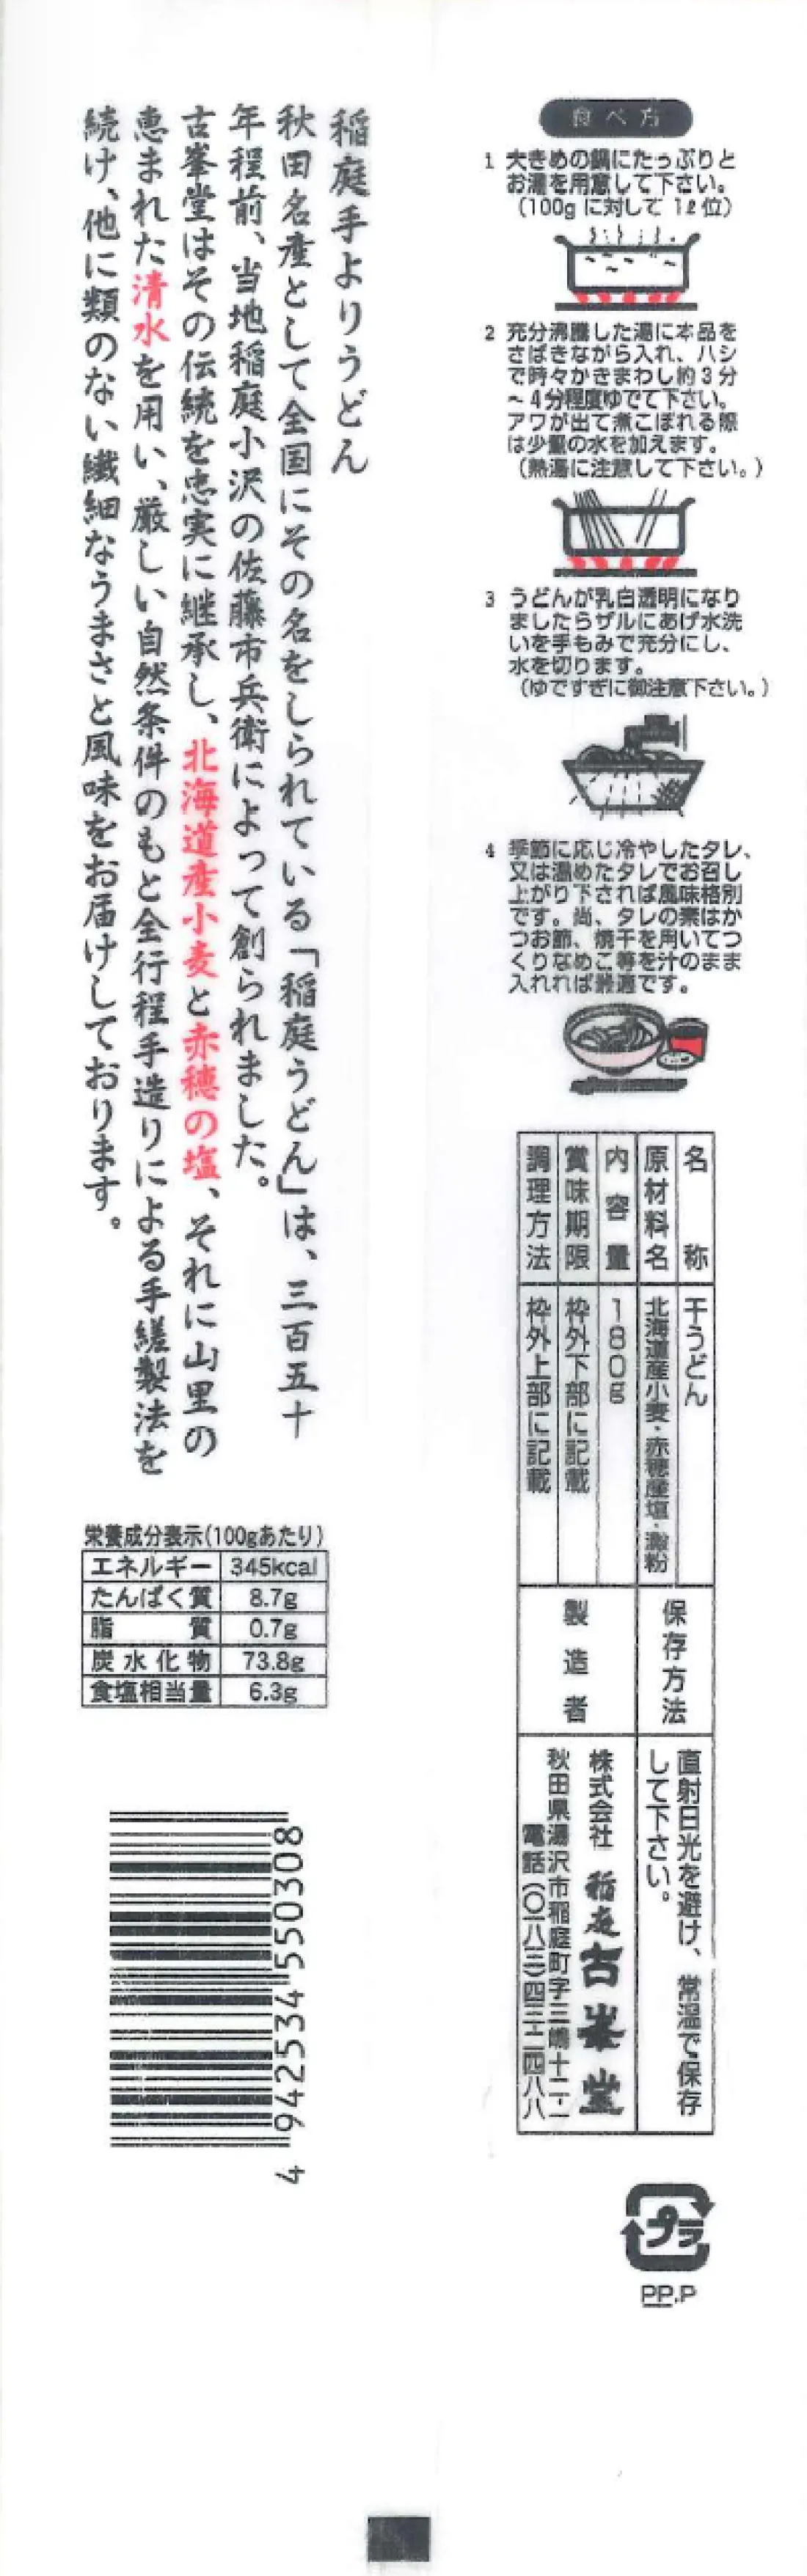 食べ方
1 大きめの鍋にたっぷりと
お湯を用意して下さい。
(100gに対して1ℓ位)
2 充分沸騰した湯に本品を
さばきながら入れ、ハシ
で時々かきまわし約3分
~4分程度ゆでて下さい。
アワが出て煮こぼれる際
は少量の水を加えます。
(熱湯に注意して下さい。)
3 うどんが乳白透明になり
ましたらザルにあげ水洗
いを手もみで充分にし、
水を切ります。
(ゆですぎに御注意下さい。)
4 季節に応じ冷やしたタレ、
又は温めたタレでお召し
上がり下されば風味格別
です。尚、タレの素はか
つお節、焼干を用いてつ
くりなめこ等を汁のまま
入れれば最適です。
稲庭手よりうどん
秋田名産として全国にその名をしられている「稲庭うどん」は、三百五十
年程前、当地稲庭小沢の佐藤市兵衛によって創られました。
古峯堂はその伝統を忠実に継承し、北海道産小麦と赤穂の塩、それに山里の
恵まれた清水を用い、厳しい自然条件のもと全行程手造りによる手縒製法を
続け、他に類のない繊細なうまさと風味をお届けしております。
名称 干うどん
原材料名 北海道産小麦・赤穂産塩・澱粉
内容量 180g
賞味期限 枠外下部に記載
調理方法 枠外上部に記載
保存方法 直射日光を避け、常温で保存
して下さい。
製造者 株式会社 稲庭古峯堂
秋田県湯沢市稲庭町字三嶋十二-一
電話(〇一八三)四三-二四八八
栄養成分表示(100gあたり)
エネルギー 345kcal
たんぱく質 8.7g
脂質 0.7g
炭水化物 73.8g
食塩相当量 6.3g
4 942534 550308
プラ
PP.P